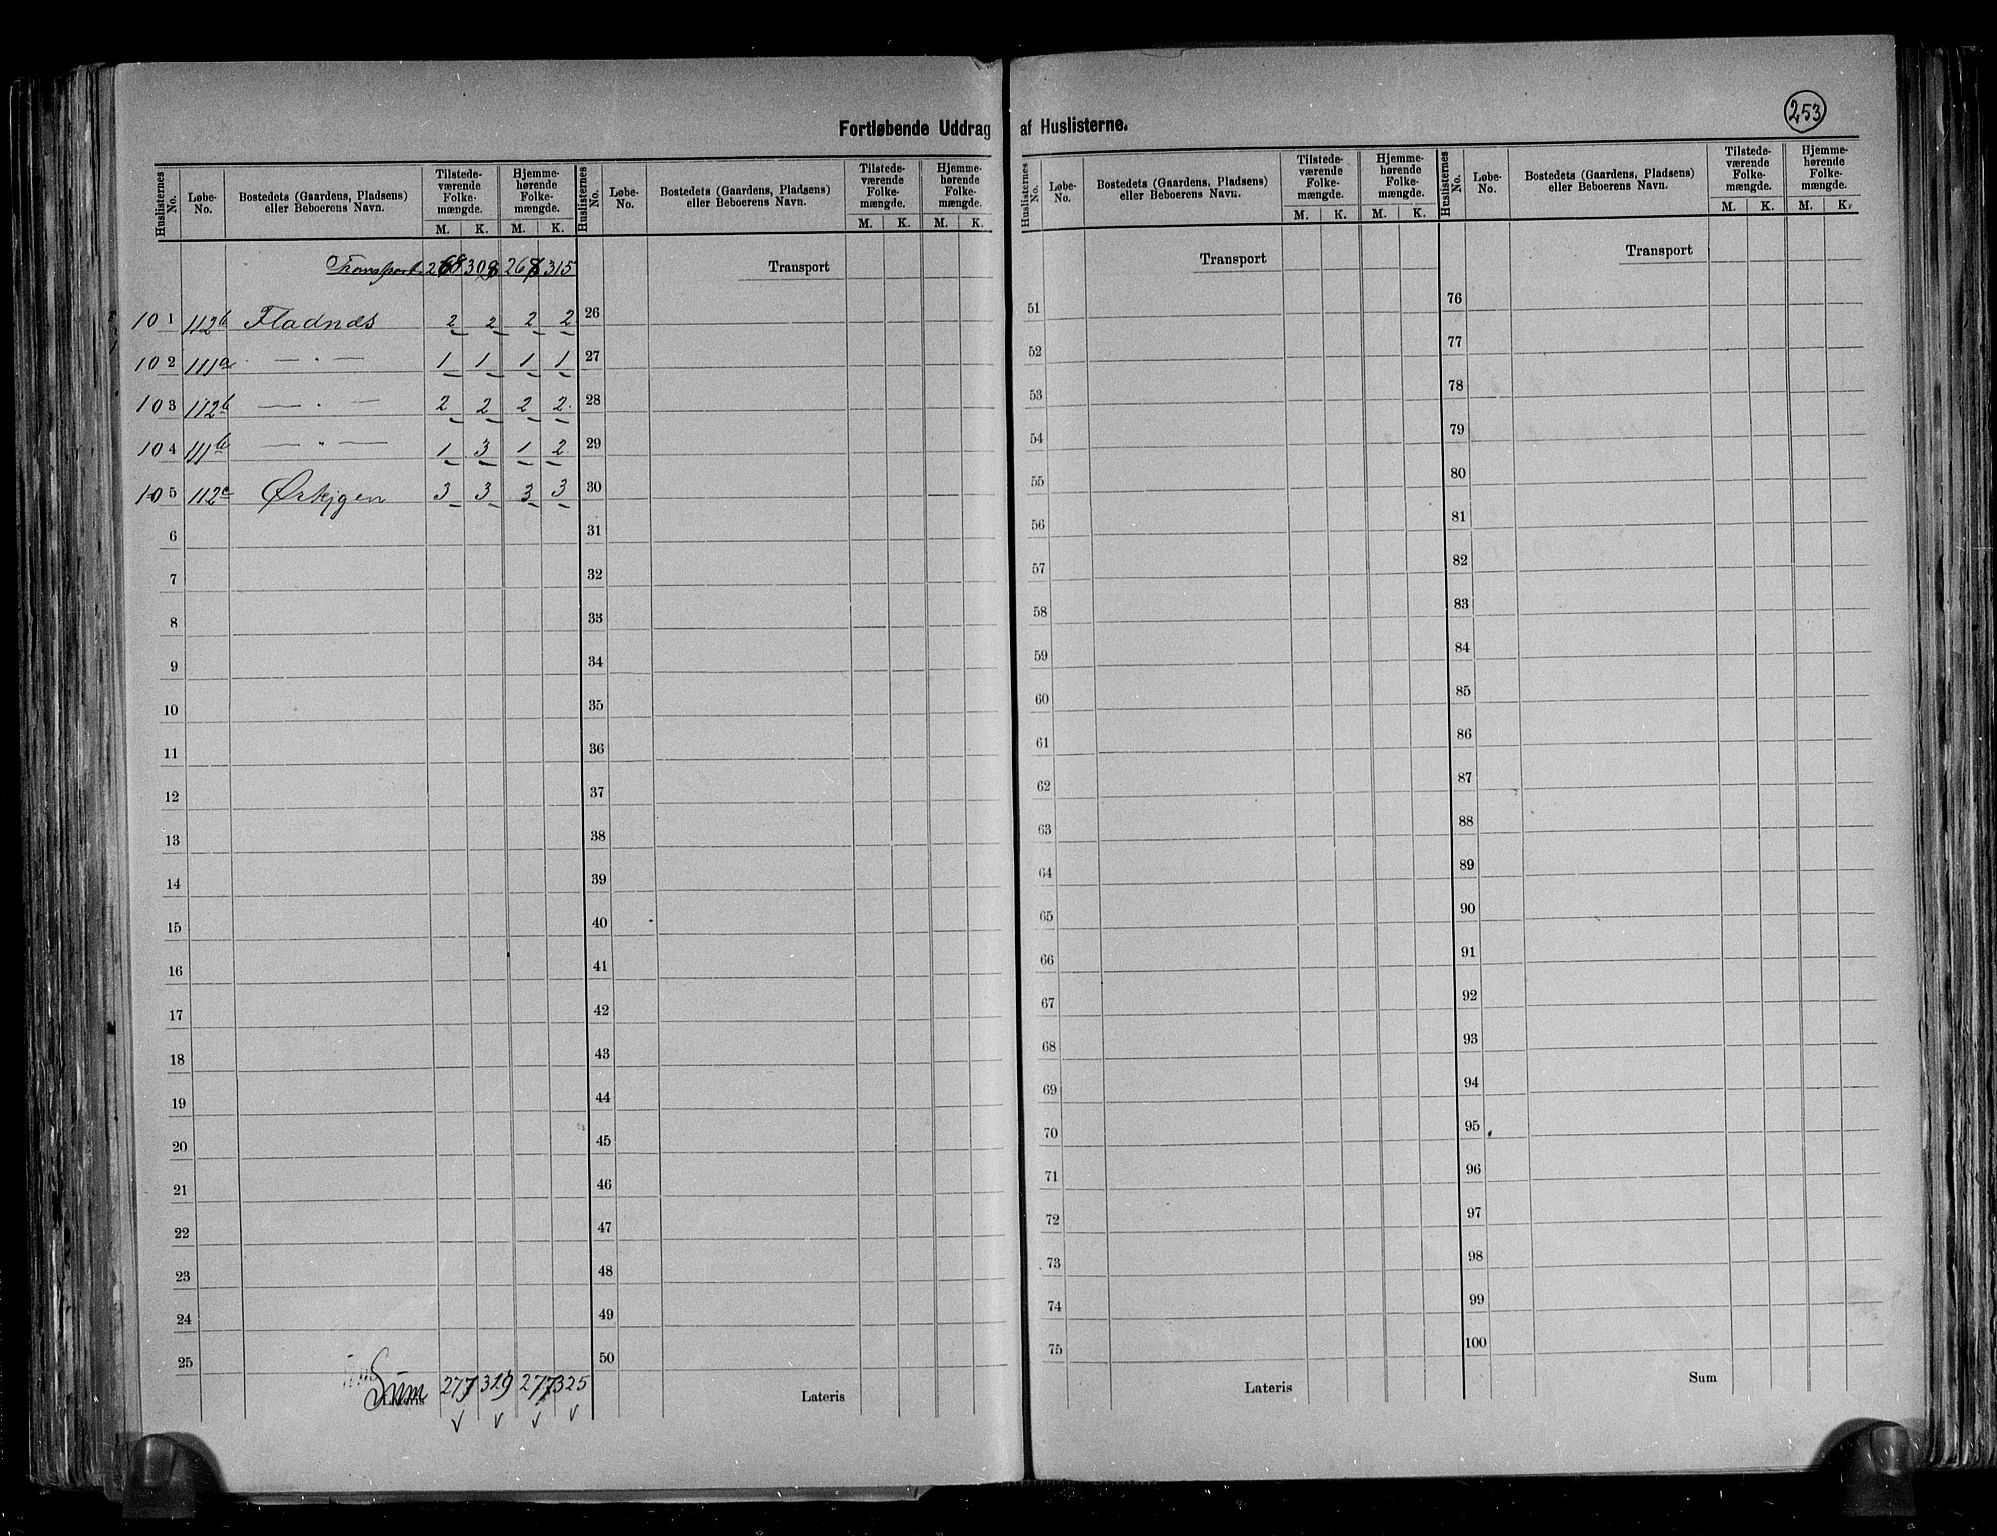 Fortløbende Uddrag af Huslisterne.
253
Huslisternes No. | Løbe-No. | Bostedets (Gaardens, Pladsens) eller Beboerens Navn. | Tilstede-værende Folke-mængde. M. K. | Hjemme-hørende Folke-mængde. M. K.
Transport 268 308 268 315
101 112b Fladnæs 2 2 2 2
102 111a — " — 1 1 1 1
103 112b — " — 2 2 2 2
104 111b — " — 1 3 1 2
105 112c Ørkjgen 3 3 3 3
6
7
8
9
10
11
12
13
14
15
16
17
18
19
20
21
22
23
24
25
Lateris Sum 277 319 277 325
Huslisternes No. | Løbe-No. | Bostedets (Gaardens, Pladsens) eller Beboerens Navn. | Tilstede-værende Folke-mængde. M. K. | Hjemme-hørende Folke-mængde. M. K.
Transport
26
27
28
29
30
31
32
33
34
35
36
37
38
39
40
41
42
43
44
45
46
47
48
49
50
Lateris
Huslisternes No. | Løbe-No. | Bostedets (Gaardens, Pladsens) eller Beboerens Navn. | Tilstede-værende Folke-mængde. M. K. | Hjemme-hørende Folke-mængde. M. K.
Transport
51
52
53
54
55
56
57
58
59
60
61
62
63
64
65
66
67
68
69
70
71
72
73
74
75
Lateris
Huslisternes No. | Løbe-No. | Bostedets (Gaardens, Pladsens) eller Beboerens Navn. | Tilstede-værende Folke-mængde. M. K. | Hjemme-hørende Folke-mængde. M. K.
Transport
76
77
78
79
80
81
82
83
84
85
86
87
88
89
90
91
92
93
94
95
96
97
98
99
100
Sum